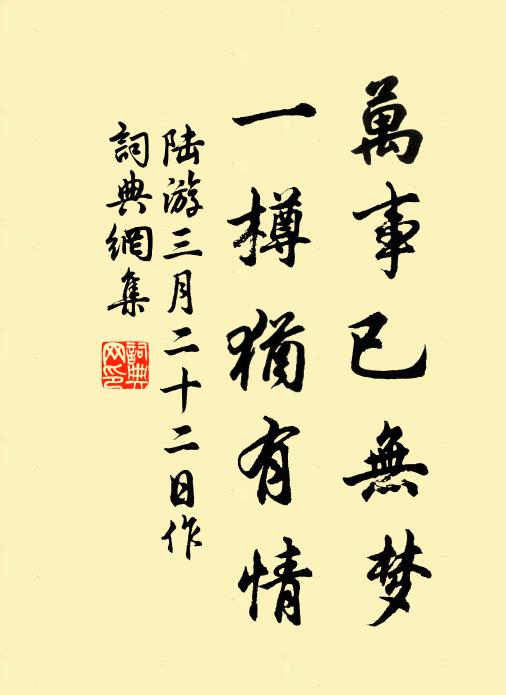 萬事已無梦
一樽猶有情
陆游三月二十二日作
詞典網集
詞典网印